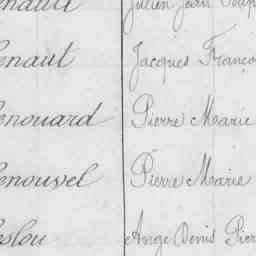 enault Julien Jean
enaut Jacques Franço
enouard Pierre Marie
enouvel Pierre Marie
eslou Ange Denis Pier